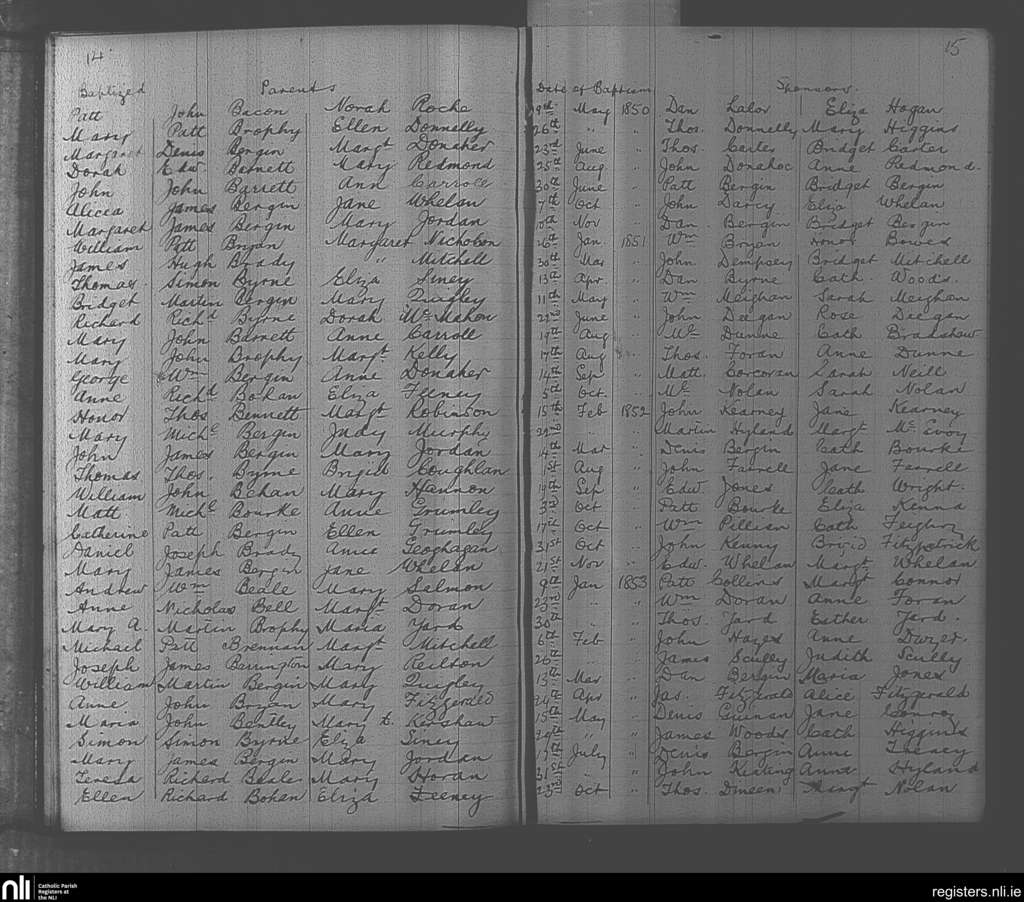 14
15
Baptized Parents Date of Baptism Sponsors
Patt John Bacon Norah Roche 9th May 1850 Dan Lalor Eliza Hogan
Mary Patt Brophy Ellen Donnelly 26th " " Thos. Donnelly Mary Higgins
Margaret Denis Bergin Margt Donaher 23rd June " Thos. Carter Bridget Carter
Dorah Edw. Barnett Mary Redmond 25th Aug " John Donahoe Anne Redmond.
John John Barrett Ann Carroll 30th June " Patt Bergin Bridget Bergin
Alicia James Bergin Jane Whelan 7th Oct " John Darcy Eliza Whelan
Margaret James Bergin Mary Jordan 10th Nov Dan Bergin Bridget Bergin
William Patt Bryan Margaret Nicholson 26th Jan. 1851 Wm Bryan Honor Bowes
James Hugh Brady " Mitchell 30th Mar " John Dempsey Bridget Mitchell
Thomas. Simon Byrne Eliza Siney 13th Apr. " Dan Byrne Cath Woods.
Bridget Martin Bergin Mary Quigley 11th May " Wm Meighan Sarah Meighan
Richard Richd Byrne Dorah McMahon 29th June " John Deegan Rose Deegan
Mary John Barrett Anne Carroll 19th Aug " Dunne Cath Bradshaw
Mary John Brophy Margt Kelly 17th Aug Thos. Foran Anne Dunne
George Wm Bergin Anne Donaher 14th Sep " Matt. Corcoran Sarah Neill
Anne Richd Bohan Eliza Feeney 5th Oct. " Nolan Sarah Nolan
Honor Thos Bennett Margt Robinson 15th Feb 1852 John Kearney Jane Kearney
Mary Michl Bergin Judy Murphy 29th " " Martin Hyland Margt McEvoy
John James Bergin Mary Jordan 14th Mar " Denis Bergin Cath Bourke
Thomas Thos. Byrne Brigid Coughlan 1st Aug " John Farrell Jane Farrell
William John Behan Mary Hannon 19th Sep " Edw. Jones Cath Wright.
Matt Michl Bourke Anne Grumley 3rd Oct " Patt Bourke Eliza Kenna
Catherine Patt Bergin Ellen Grumley 17th Oct " Wm Pillian Cath
Daniel Joseph Brady Anne Geoghagan 31st Oct " John Kenny Brigid Fitzpatrick
Mary James Bergin Jane Whelan 21st Nov " Edw. Whelan Margt Whelan
Andrew Wm Beale Mary Salmon 9th Jan 1853 Patt Collins Margt Connor
Anne Nicholas Bell Margt Doran 23rd " " Wm Doran Anne Foran
Mary A. Martin Brophy Maria Yard 30th " " Thos. Yard Esther Yard.
Michael Patt Brennan Margt Mitchell 6th Feb " John Hayes Anne Dwyer.
Joseph James Barrington Mary Keilton 26th " James Scully Judith Scully
William Martin Bergin Mary Quigley 13th Mar " Dan Bergin Maria Jones
Anne John Bryan Mary Fitzgerald 24th Apr " Jas. Fitzgerald Alice Fitzgerald
Maria John Bentley Mary Kershaw 15th May " Denis Guinan Jane Conroy
Simon Simon Byrne Eliza Siney 29th " " James Woods Cath Higgins
Mary James Bergin Mary Jordan July " Denis Bergin Anne
Teresa Richard Beale Mary Horan 31st " " John Keating Anne Hyland
Ellen Richard Bohan Eliza Feeney 23rd Oct " Thos. Dineen Margt Nolan
nli Catholic Parish
Registers at
the NLI
registers.nli.ie